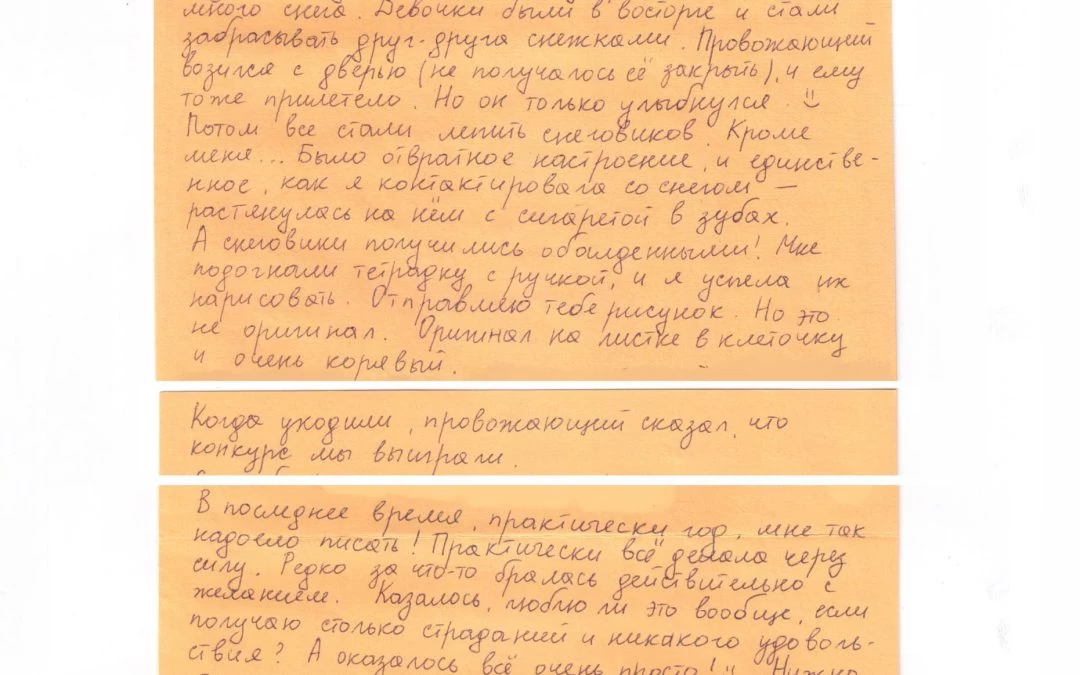 много снега. Девочки были в восторге и стали
забрасывать друг-друга снежками. Провожающий
возился с дверью (не получалось её закрыть), и ему
тоже прилетело. Но он только улыбнулся
Потом все стали лепить снеговиков. Кроме
меня... Было отвратное настроение, и единстве-
нное, как я контактировала со снегом —
растянулась на нём с сигаретой в зубах.
А снеговики получились обалденными! Мне
подогнали тетрадку с ручкой, и я успела их
нарисовать. Отправляю тебе рисунок. Но это
не оригинал. Оригинал на листке в клеточку
и очень корявый.
Когда уходили, провожающий сказал, что
конкурс мы выиграли.
В последнее время, практически год, мне так
надоело писать! Практически всё делала через
силу. Редко за что-то бралась действительно с
желанием. Казалось, люблю ли это вообще, если
получаю столько страданий и никакого удоволь-
ствия? А оказалось всё очень просто! Нужно